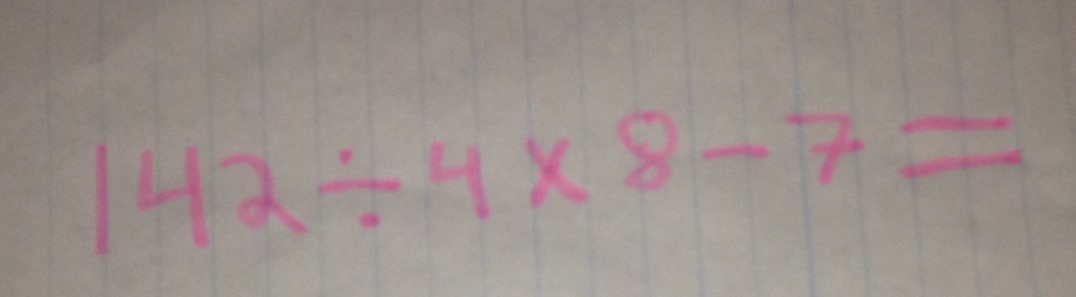 142÷4x8-7=